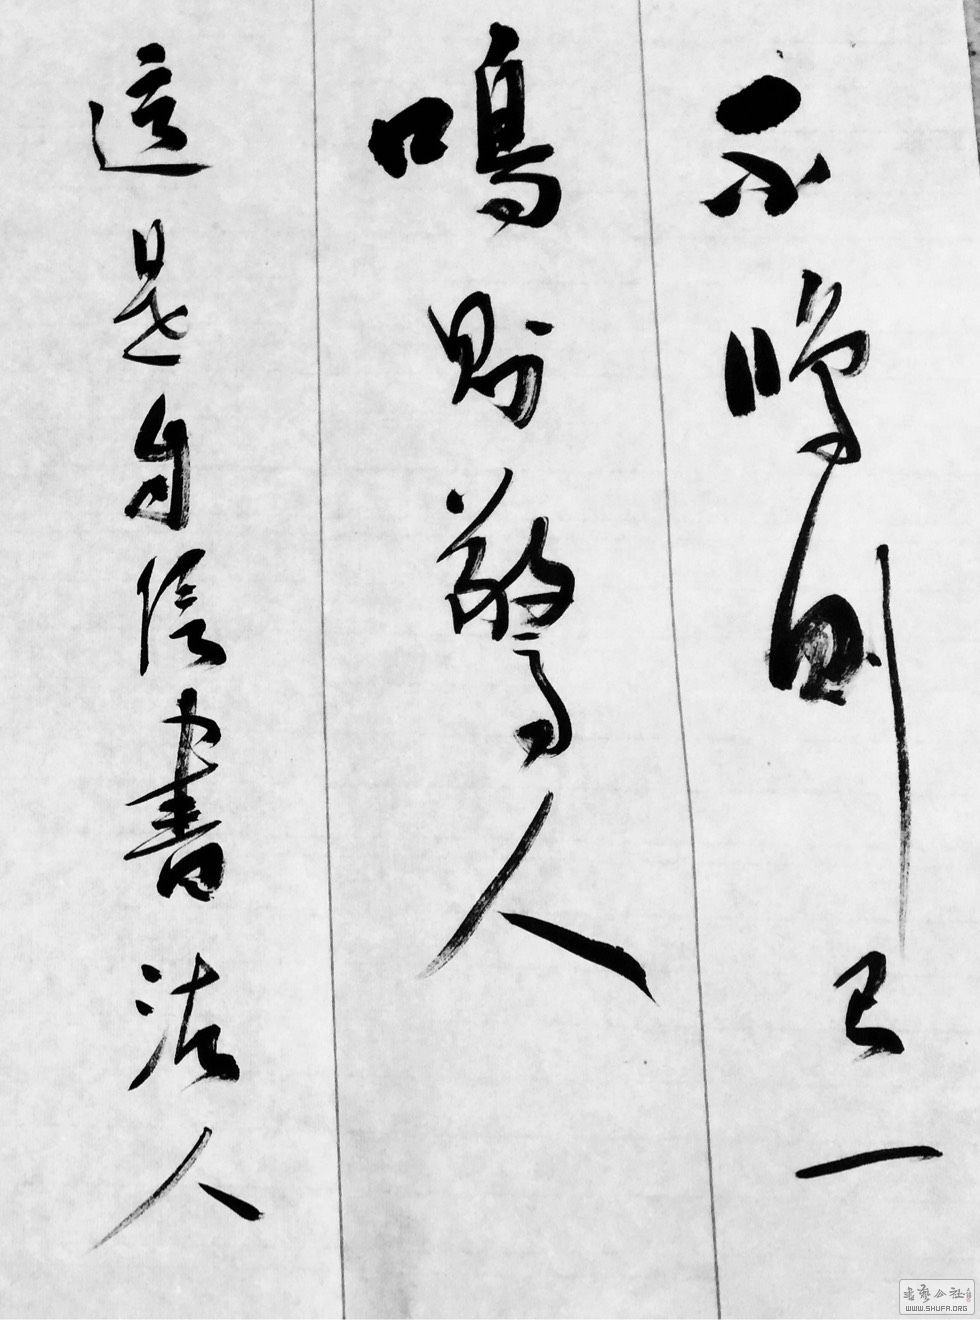 不鳴則已一
鳴則驚人
這是自信書法人
WWW.SHUFA.ORG